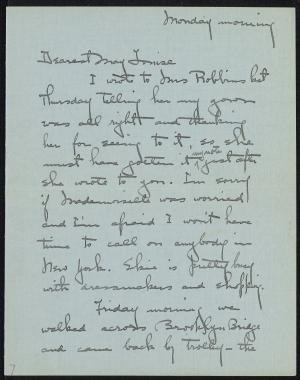 Monday morning
Dearest May Louise
I wrote to Mrs Robbins last
Thursday telling her my gown
was all right and thanking
her for seeing to it, so she
must have gotten it just after
she wrote to you. I'm sorry
if Mademoiselle was worried
and I'm afraid I won't have
time to call on anybody in
New York. Elsie is pretty busy
with dressmakers and shopping.
Friday morning we
walked across Brooklyn Bridge
and came back by trolley – the